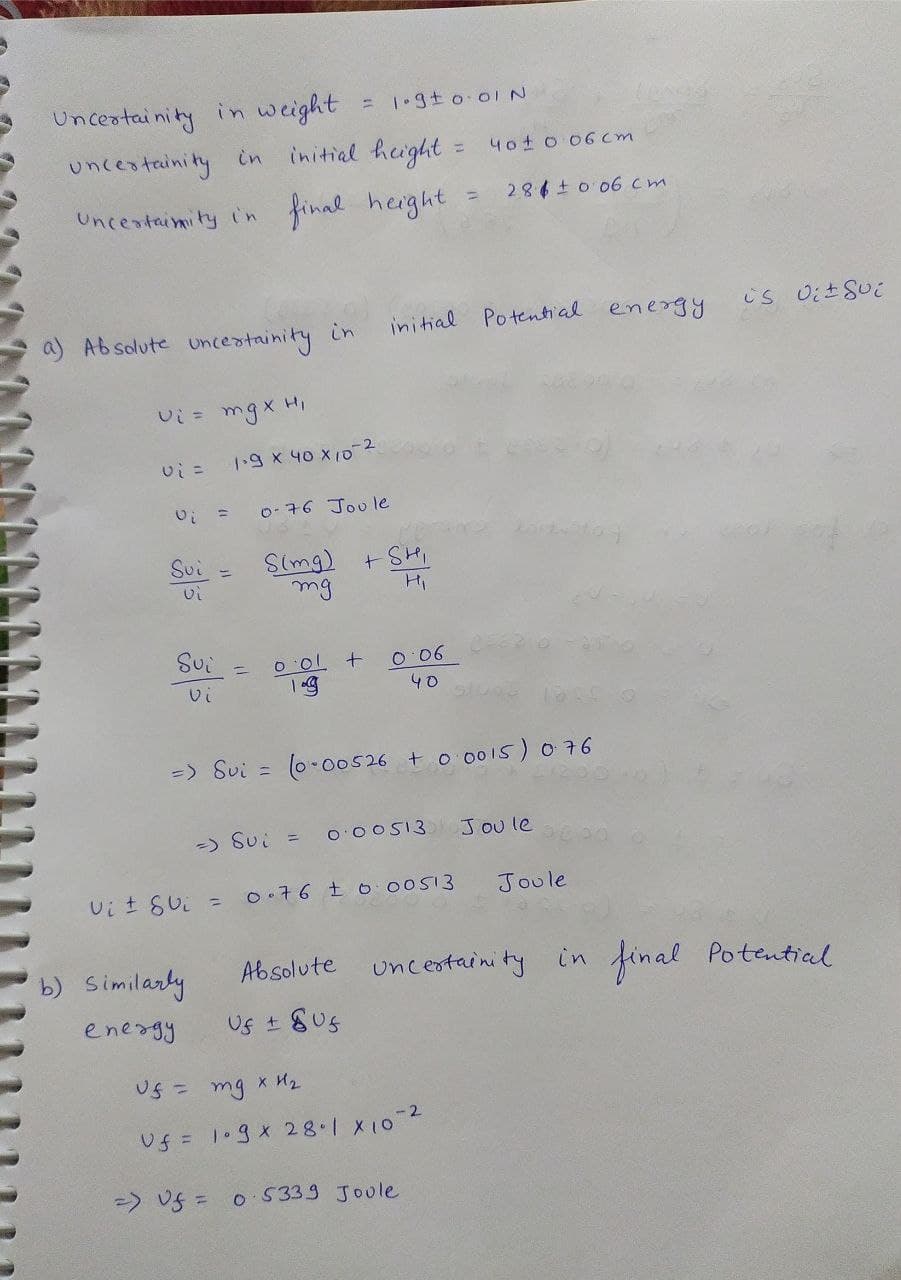 Uncertainity in weight = 1.9 ± 0.01 N
uncertainity in initial height = 40 ± 0.06 cm
Uncertainity in final height = 281 ± 0.06 cm
a) Absolute uncertainity in initial Potential energy is Ui ± δUi
Ui = mg × H1
Ui = 1.9 × 40 × 10^-2
Ui = 0.76 Joule
δUi/Ui = δ(mg)/mg + δH1/H1
δUi/Ui = 0.01/1.9 + 0.06/40
=> δUi = (0.00526 + 0.0015) 0.76
=> δUi = 0.00513 Joule
Ui ± δUi = 0.76 ± 0.00513 Joule
b) Similarly Absolute uncertainity in final Potential
energy Uf ± δUf
Uf = mg × H2
Uf = 1.9 × 28.1 × 10^-2
=> Uf = 0.5339 Joule